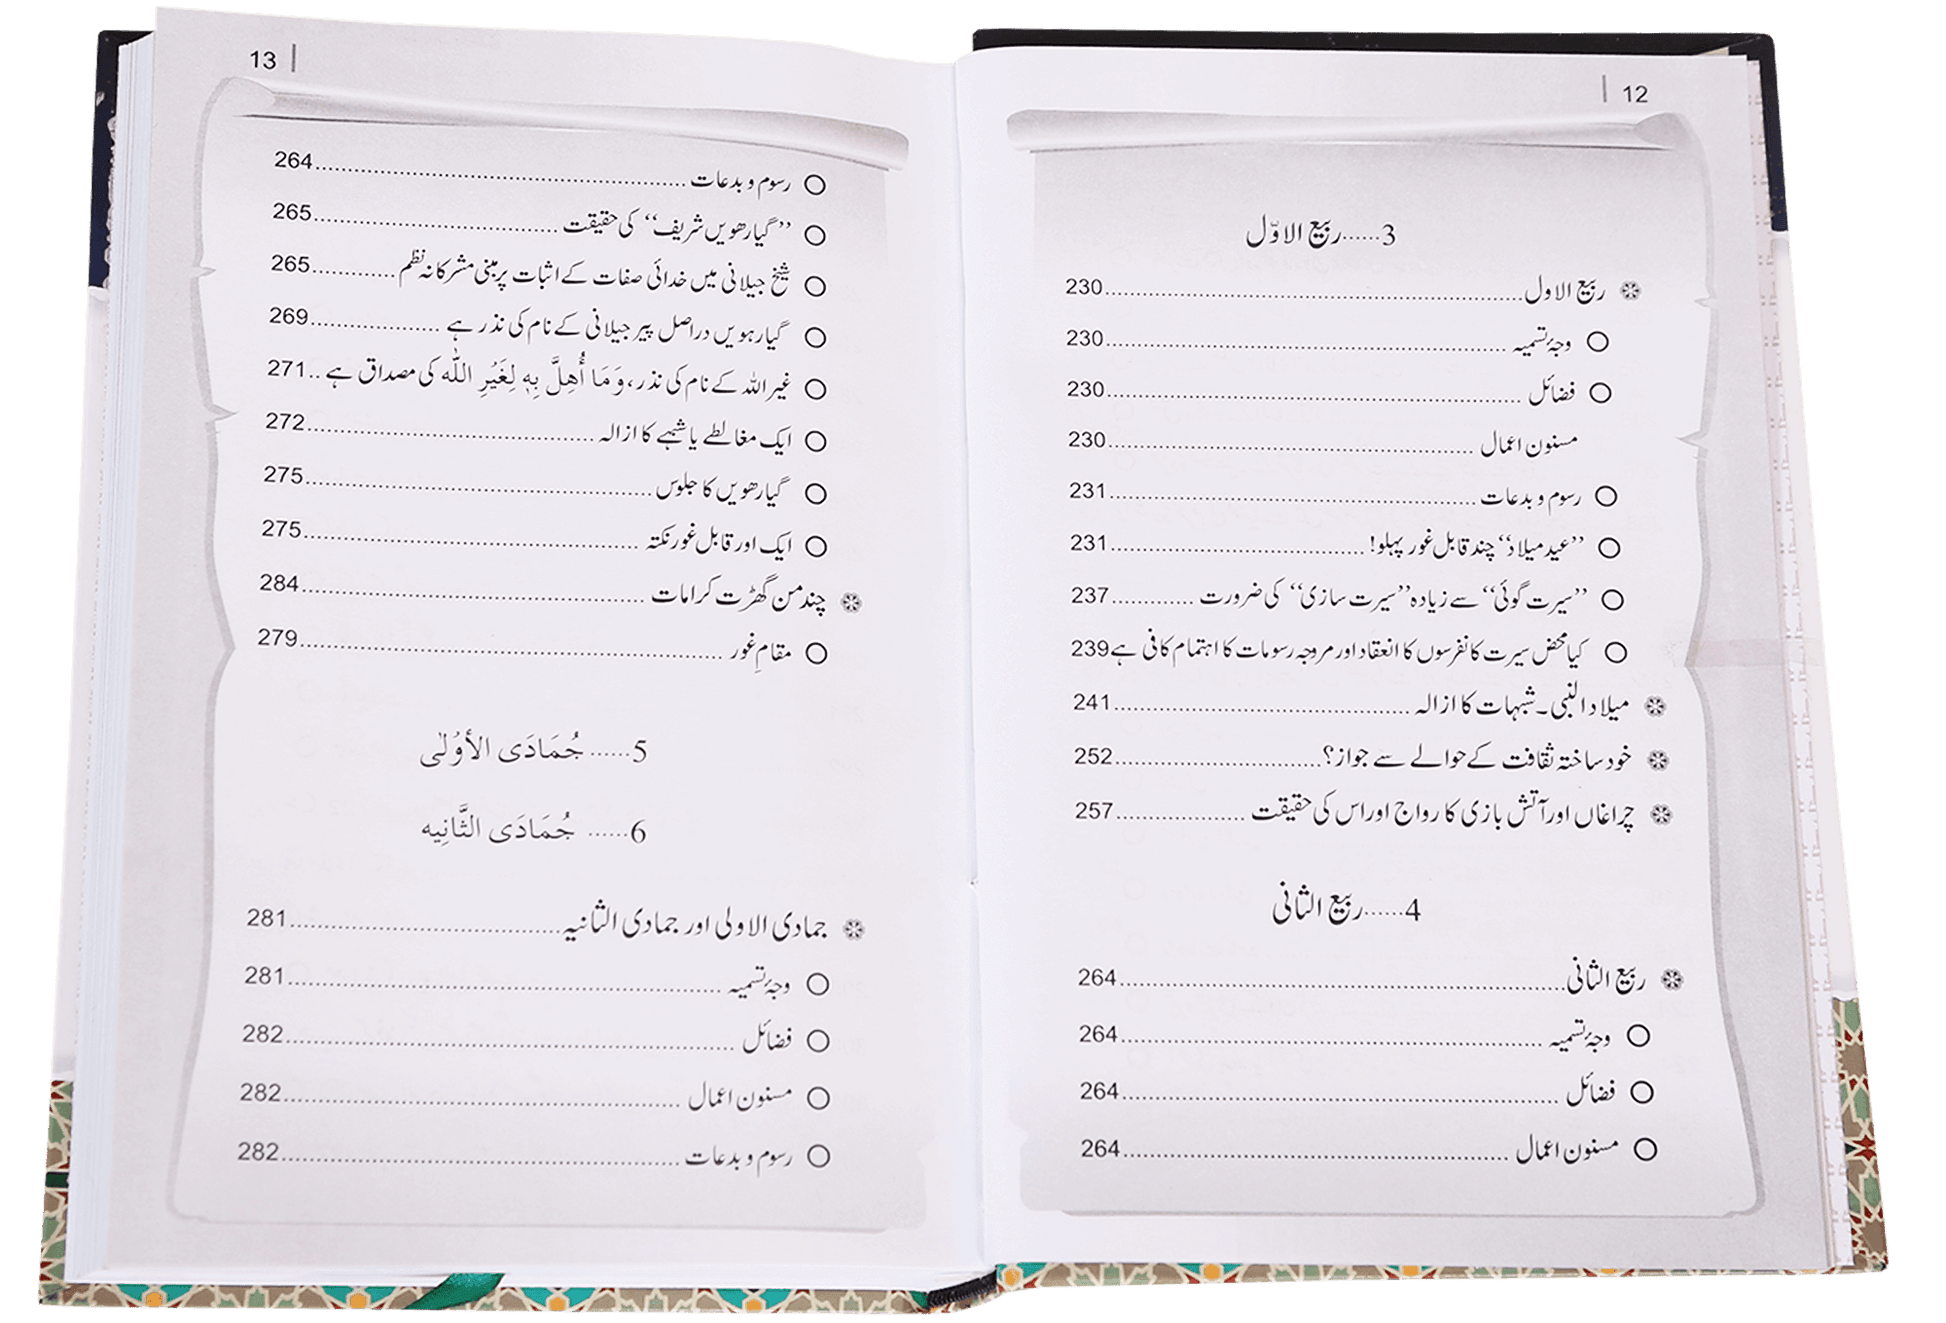 12
3......ربیع الاوّل
ربیع الاول......230
وجۂ تسمیہ......230
فضائل......230
مسنون اعمال......230
رسوم و بدعات......231
’’عید میلاد‘‘ چند قابل غور پہلو!......231
’’سیرت گوئی‘‘ سے زیادہ ’’سیرت سازی‘‘ کی ضرورت......237
کیا محض سیرت کانفرسوں کا انعقاد اور مروجہ رسومات کا اہتمام کافی ہے 239
میلاد النبی۔ شبہات کا ازالہ......241
خود ساختہ ثقافت کے حوالے سے جواز؟......252
چراغاں اور آتش بازی کا رواج اور اس کی حقیقت......257
4......ربیع الثانی
ربیع الثانی......264
وجۂ تسمیہ......264
فضائل......264
مسنون اعمال......264
13
رسوم و بدعات......264
’’گیارھویں شریف‘‘ کی حقیقت......265
شیخ جیلانی میں خدائی صفات کے اثبات پر مبنی مشرکانہ نظم......265
گیارہویں دراصل پیر جیلانی کے نام کی نذر ہے......269
غیر اللہ کے نام کی نذر، وَمَا أُهِلَّ بِهٖ لِغَيْرِ اللّٰه کی مصداق ہے..271
ایک مغالطے یا شبہے کا ازالہ......272
گیارھویں کا جلوس......275
ایک اور قابل غور نکتہ......275
چند من گھڑت کرامات......284
مقامِ غور......279
5......جُمَادَى الأوْلٰى
6......جُمَادَى الثَّانِيه
جمادی الاولی اور جمادی الثانیہ......281
وجۂ تسمیہ......281
فضائل......282
مسنون اعمال......282
رسوم و بدعات......282